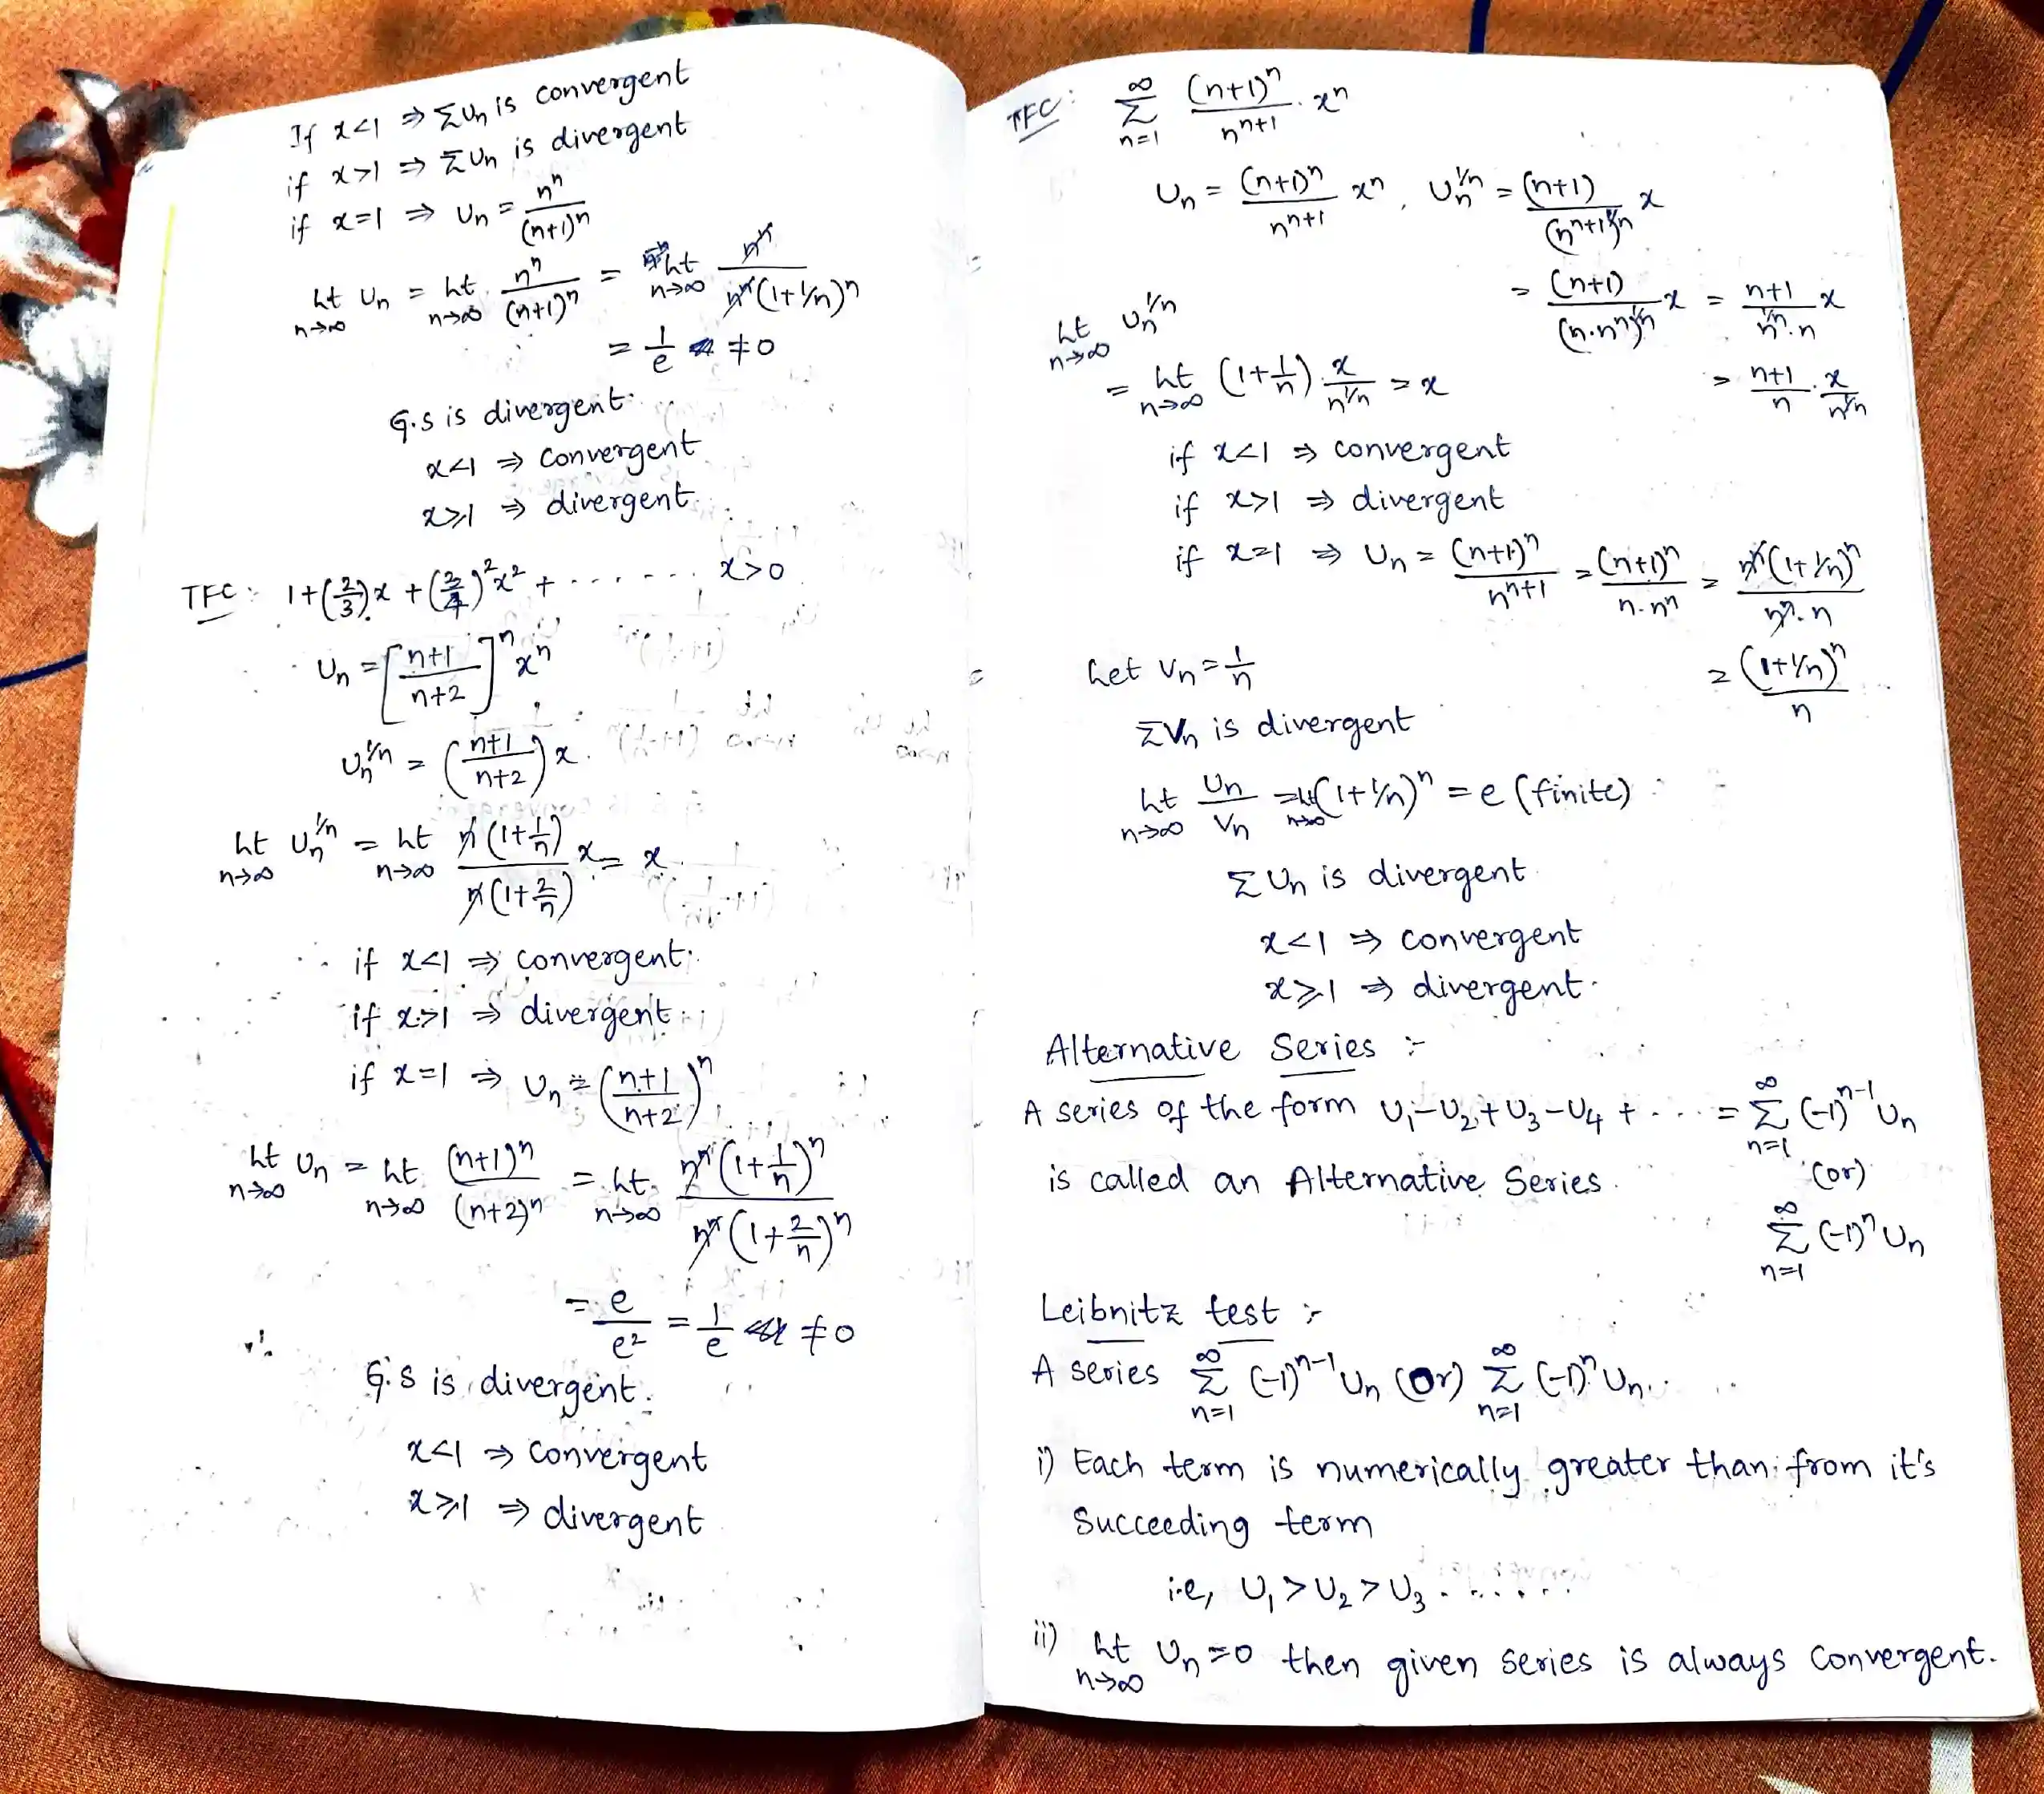 If x<1 ⇒ ΣUn is convergent
if x>1 ⇒ ΣUn is divergent
if x=1 ⇒ Un = n^n/(n+1)^n
Lt n→∞ Un = Lt n→∞ n^n/(n+1)^n = Lt n→∞ n^n/n^n(1+1/n)^n
= 1/e ≠0
G.S is divergent.
x<1 ⇒ convergent
x≥1 ⇒ divergent
TFC: 1+(2/3)x+(3/4)^2x^2+....... x>0
Un = [n+1/n+2]^n x^n
Un^1/n = (n+1/n+2)x.
Lt n→∞ Un^1/n = Lt n→∞ n(1+1/n)/n(1+2/n) x = x
if x<1 ⇒ convergent.
if x>1 ⇒ divergent
if x=1 ⇒ Un = (n+1/n+2)^n
Lt n→∞ Un = Lt n→∞ (n+1)^n/(n+2)^n = Lt n→∞ n^n(1+1/n)^n/n^n(1+2/n)^n
= e/e^2 = 1/e ≠0
G.S is divergent.
x<1 ⇒ convergent
x≥1 ⇒ divergent
TFC: ∞ Σ n=1 (n+1)^n/n^n+1 . x^n
Un = (n+1)^n/n^n+1 x^n, Un^1/n = (n+1)/(n^n+1)^1/n x
= (n+1)/(n.n^n)^1/n x = n+1/n^1/n.n x
= n+1/n . x/n^1/n
Lt n→∞ Un^1/n
= Lt n→∞ (1+1/n) . x/n^1/n = x
if x<1 ⇒ convergent
if x>1 ⇒ divergent
if x=1 ⇒ Un = (n+1)^n/n^n+1 = (n+1)^n/n.n^n = n^n(1+1/n)^n/n^n.n
= (1+1/n)^n/n
Let Vn = 1/n
ΣVn is divergent
Lt n→∞ Un/Vn = Lt n→∞ (1+1/n)^n = e (finite)
ΣUn is divergent
x<1 ⇒ convergent
x≥1 ⇒ divergent.
Alternative Series :-
A series of the form U1-U2+U3-U4+.... = ∞ Σ n=1 (-1)^n-1 Un
is called an Alternative Series. (or)
∞ Σ n=1 (-1)^n Un
Leibnitz test :-
A series ∞ Σ n=1 (-1)^n-1 Un (or) ∞ Σ n=1 (-1)^n Un.
i) Each term is numerically greater than from it's
Succeeding term
i.e, U1>U2>U3.......
ii) Lt n→∞ Un=0 then given series is always convergent.